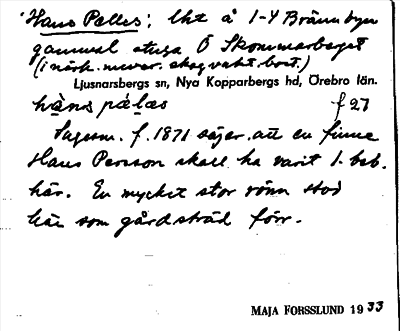 Hans Palles; lht å 1-4 Brännbyn
gammal stuga Ö Skommarberget
(i närh. nuvar. skogsvakt.bost.)
Ljusnarsbergs sn, Nya Kopparbergs hd, Örebro län.
hans palas f 27
Sagesm. f. 1871 säger att en finne
Hans Persson skall ha varit 1. beb.
här. En mycket stor rönn stod
här som gårdsträd förr.
MAJA FORSSLUND 1933